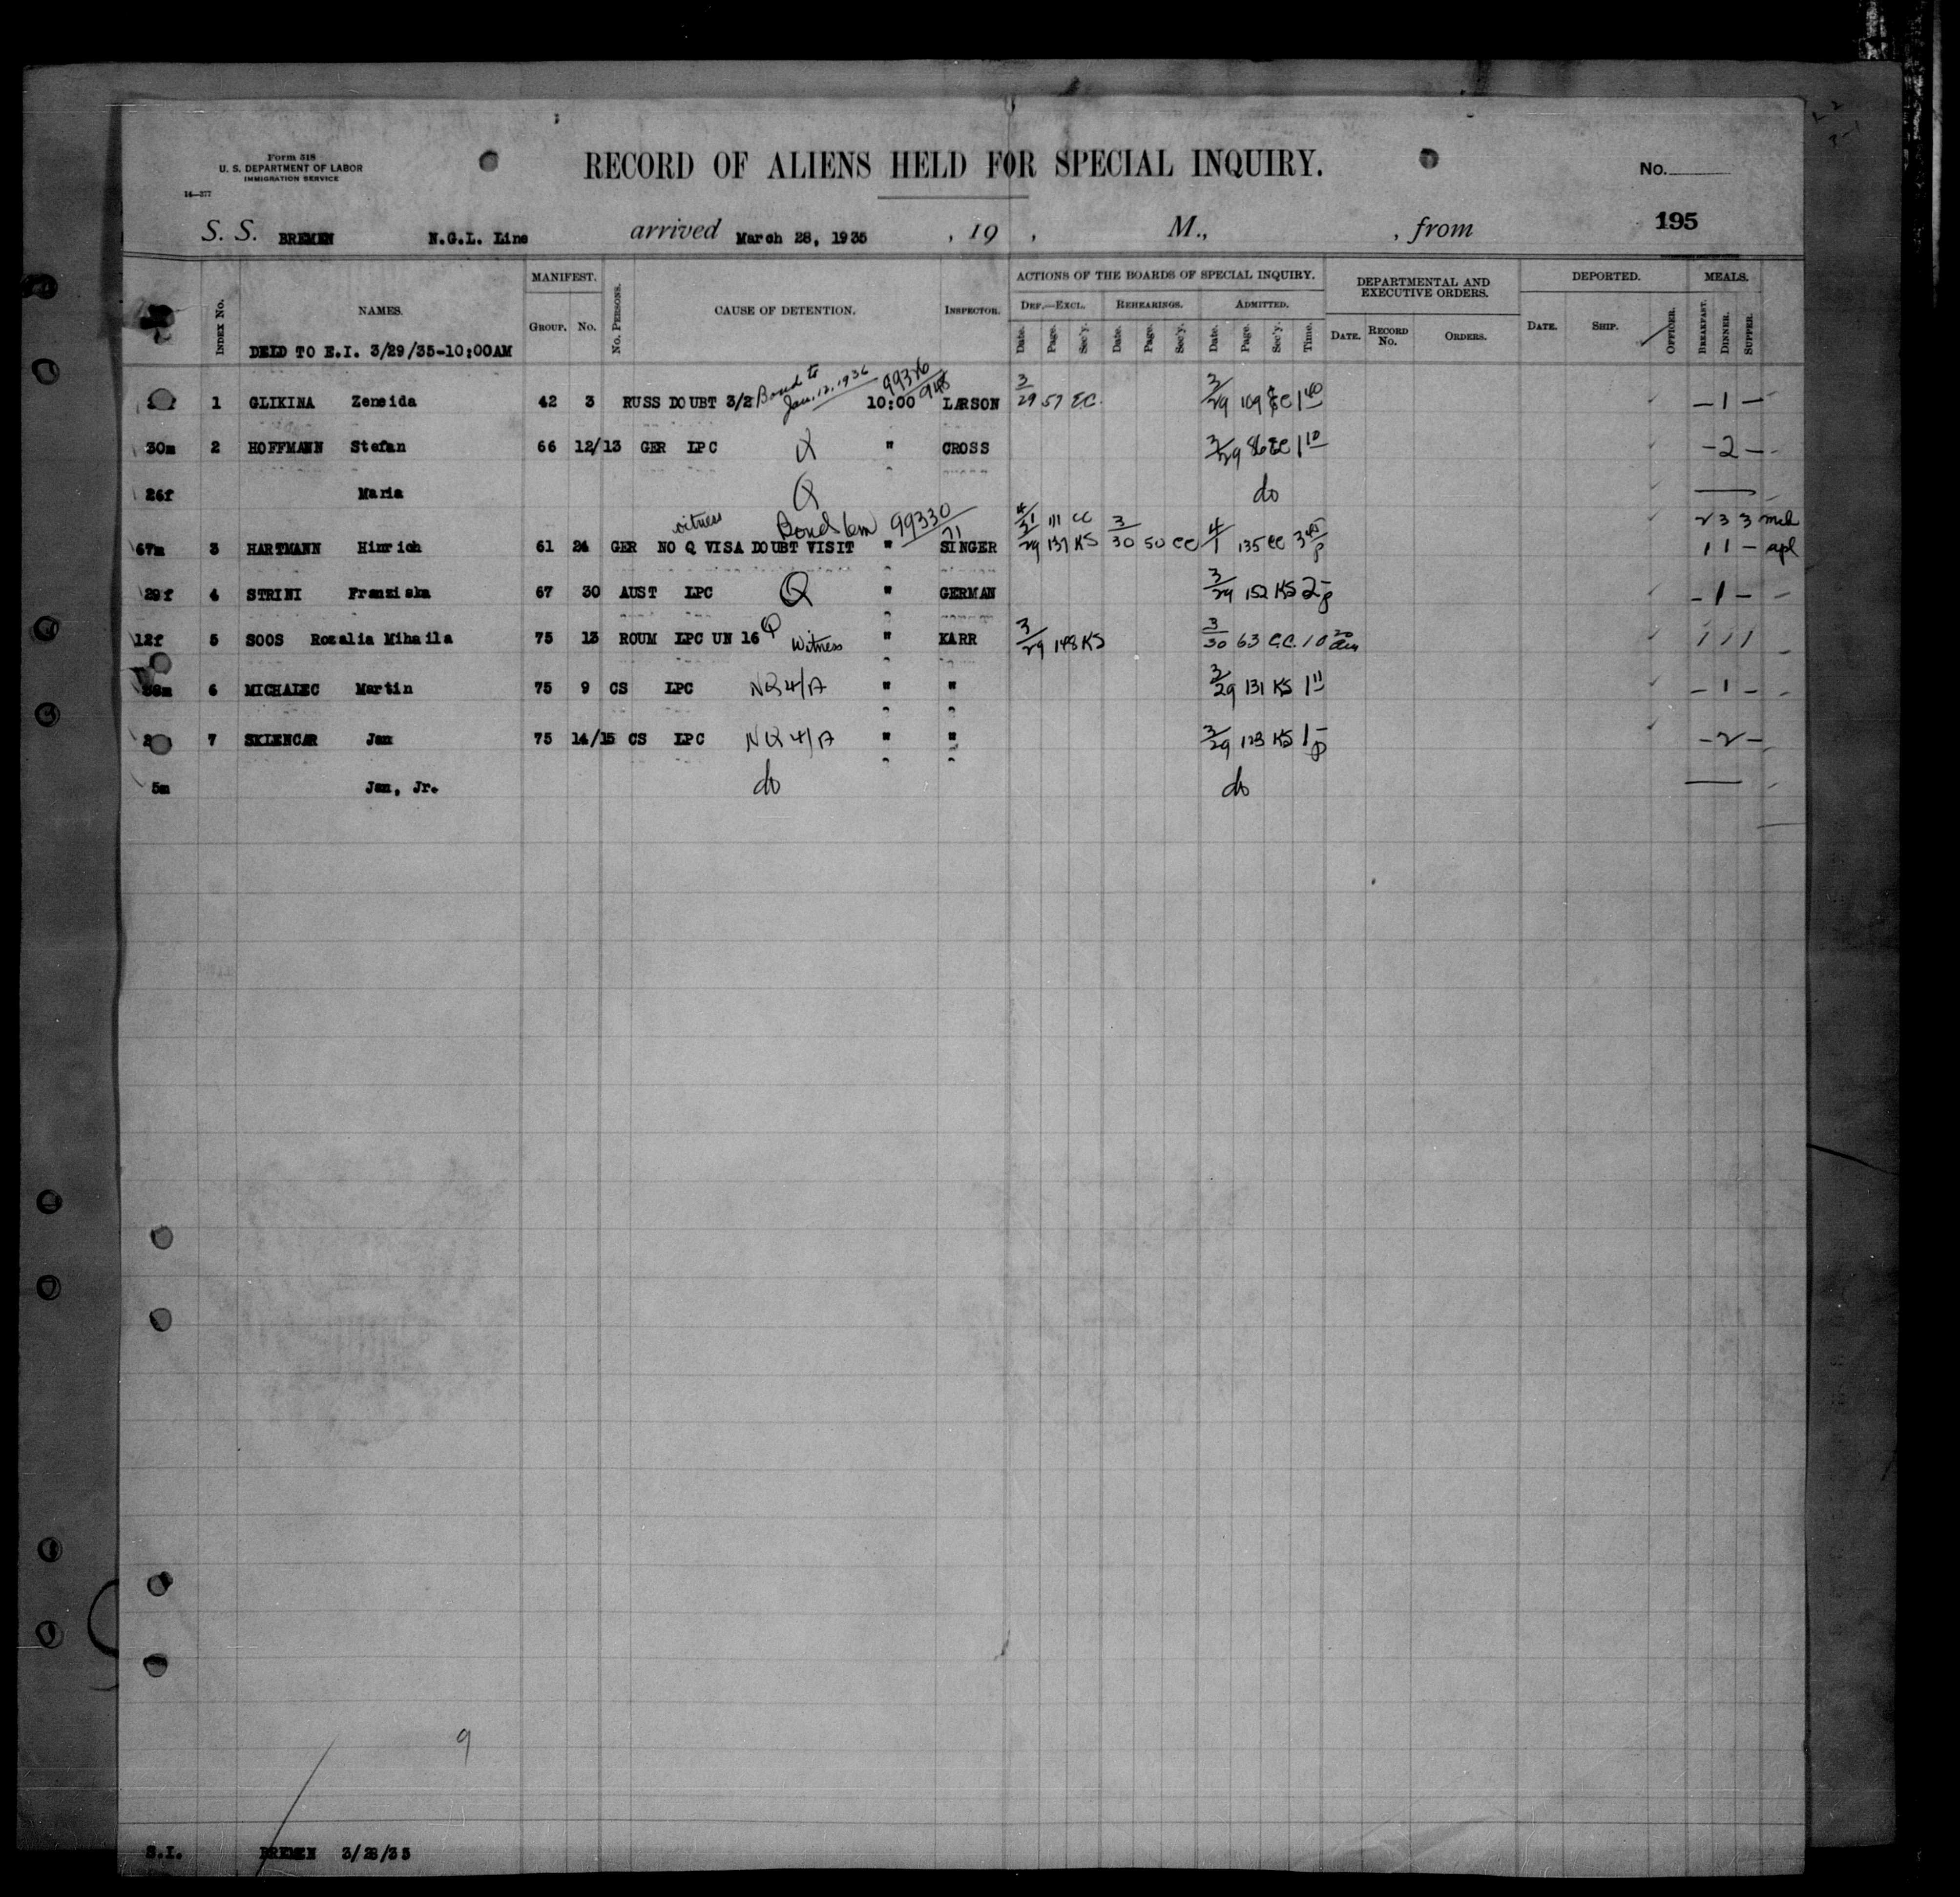 Form 518
U. S. DEPARTMENT OF LABOR
IMMIGRATION SERVICE
14—377
RECORD OF ALIENS HELD FOR SPECIAL INQUIRY.
No.
195
S. S. BREMEN N.G.L. Line arrived March 28, 1935 , 19 , M., , from
INDEX No. NAMES. MANIFEST. GROUP. No. No. PERSONS. CAUSE OF DETENTION. INSPECTOR. ACTIONS OF THE BOARDS OF SPECIAL INQUIRY. DEF.—EXCL. Date. Page. Sec'y. REHEARINGS. Date. Page. Sec'y. ADMITTED. Date. Page. Sec'y. Time. DEPARTMENTAL AND EXECUTIVE ORDERS. DATE. RECORD No. ORDERS. DEPORTED. DATE. SHIP. OFFICER. MEALS. BREAKFAST. DINNER. SUPPER.
DELD TO E.I. 3/29/35-10:00AM
Bond to Jan. 12, 1936 99326/948
1 GLIKINA Zeneida 42 3 RUSS DOUBT 3/2 10:00 LARSON 3/29 57 EC. 3/29 109 EC 1 40 — 1 —
30m 2 HOFFMANN Stefan 66 12/13 GER LPC Q " CROSS 3/29 86 EC 1 10 - 2 -
26f Maria Q do
witness Bond 6m 99330/71 4/1 111 CC 2 3 3 mch
67m 3 HARTMANN Hinrich 61 24 GER NO Q VISA DOUBT VISIT " SINGER 3/29 137 KS 3/30 50 CC 4/1 135 CC 3 45 p 1 1 - apl
29f 4 STRINI Franziska 67 30 AUST LPC Q " GERMAN 3/29 152 KS 2 p - 1 -
12f 5 SOOS Rozalia Mihaila 75 13 ROUM LPC UN 16 Q Witness " KARR 3/29 148 KS 3/30 63 C.C. 10 20 am 1 1 1
38m 6 MICHALEC Martin 75 9 CS LPC NQ 4/A " " 3/29 131 KS 1 11 - 1 -
7 SKLENCAR Jan 75 14/15 CS LPC NQ 4/A " " 3/29 123 KS 1 p - 2 -
5m Jan, Jr. do do
9
S.I. BREMEN 3/28/35